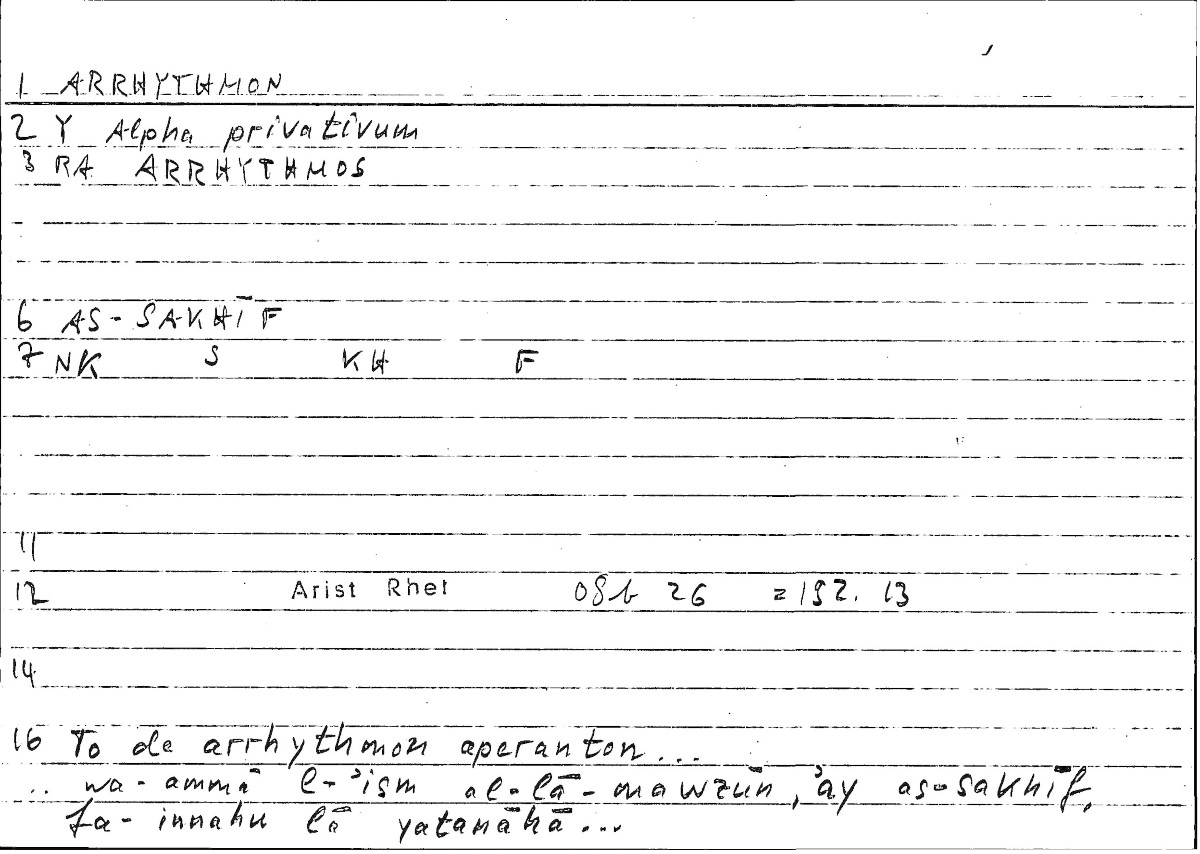 1 ARRHYTHMON
2 Y Alpha privativum
3 RA ARRHYTHMOS
6 AS-SAKHĪF
7 NK S KH F
11
12 Arist Rhet 08b 26 = 192. 13
14
16 To de arrhythmon aperanton...
.. wa-ammā l-'ism al-lā-mawzūn, 'ay as-sakhīf,
fa-innahu lā yatanāhā...